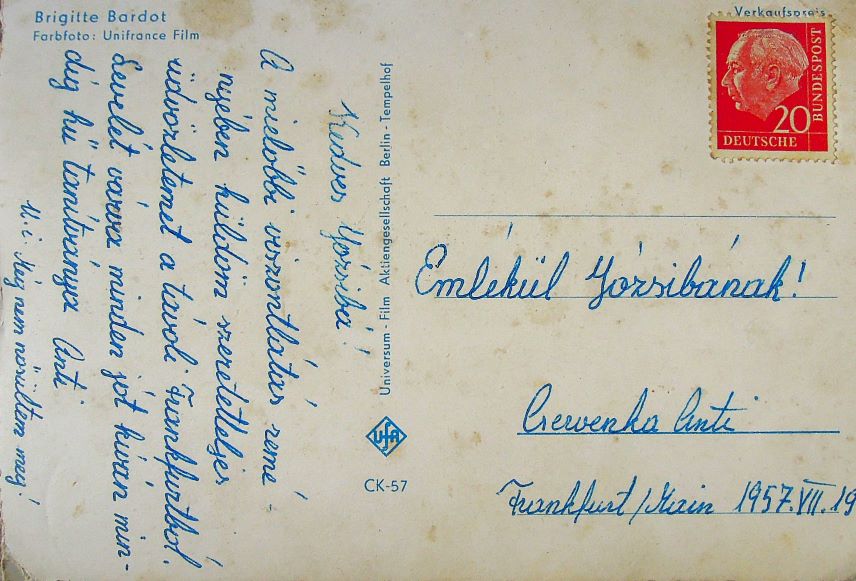 Brigitte Bardot
Farbfoto: Unifrance Film
Verkaufspreis
20
DEUTSCHE
BUNDESPOST
Universum - Film Aktiengesellschaft Berlin - Tempelhof
ufa
CK-57
Kedves Józsibá!
A mielőbbi viszontlátás remé-
nyében küldöm szeretetteljes
üdvözletemet a távoli Frankfurtból.
Levelét várva minden jót kíván min-
dég hű tanítványa Anti
U.i. Még nem nősültem meg!
Emlékül Józsibának!
Cservenka Anti
Frankfurt/Main 1957.VII.19